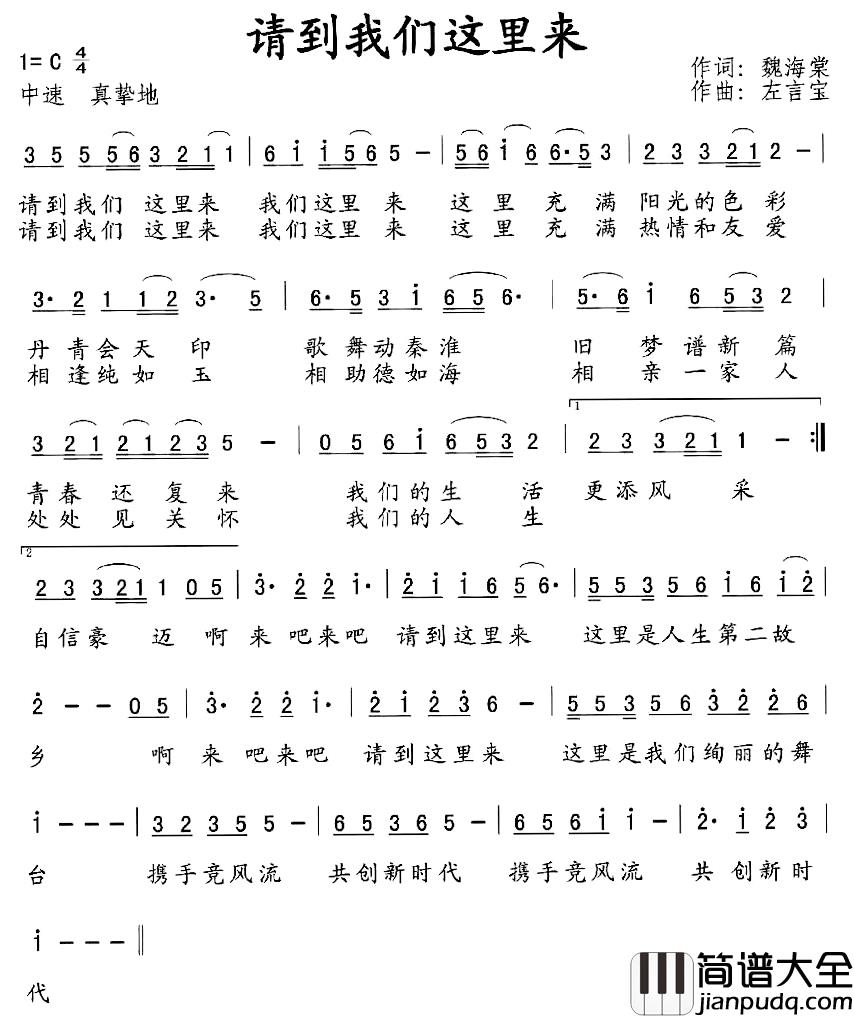 请到我们这里来
1= C 4/4
中速 真挚地
作词：魏海棠
作曲：左言宝
3 5 5 5 6 3 2 1 1 | 6 i i 5 6 5 - | 5 6 i 6 6· 5 3 | 2 3 3 2 1 2 - |
请到我们 这里来 我们这里 来 这 里 充 满 阳光的色 彩
请到我们 这里来 我们这里 来 这 里 充 满 热情和友 爱
3· 2 1 1 2 3· 5 | 6· 5 3 i 6 5 6· | 5· 6 i 6 5 3 2 |
丹 青会天 印 歌 舞动秦淮 旧 梦 谱新 篇
相 逢纯如 玉 相 助德如海 相 亲 一家 人
3 2 1 2 1 2 3 5 - | 0 5 6 i 6 5 3 2 | 1 2 3 3 2 1 1 - :|
青春 还 复 来 我们的生 活 更添风 采
处处 见 关 怀 我们的人 生
2
2 3 3 2 1 1 0 5 | 3· 2 2 i· | 2 i i 6 5 6· | 5 5 3 5 6 i 6 i 2 |
自信豪 迈 啊 来 吧来吧 请到这里来 这里是人生第二故
2 - - 0 5 | 3· 2 2 i· | 2 i 2 3 6 - | 5 5 3 5 6 3 2 2 6 |
乡 啊 来 吧来吧 请到这里来 这里是我们绚丽的舞
i - - - | 3 2 3 5 5 - | 6 5 3 6 5 - | 6 5 6 i i - | 2· i 2 3 |
台 携手竞风流 共创新时代 携手竞风流 共 创新时
i - - - ||
代
简谱大全
jianpudq.com